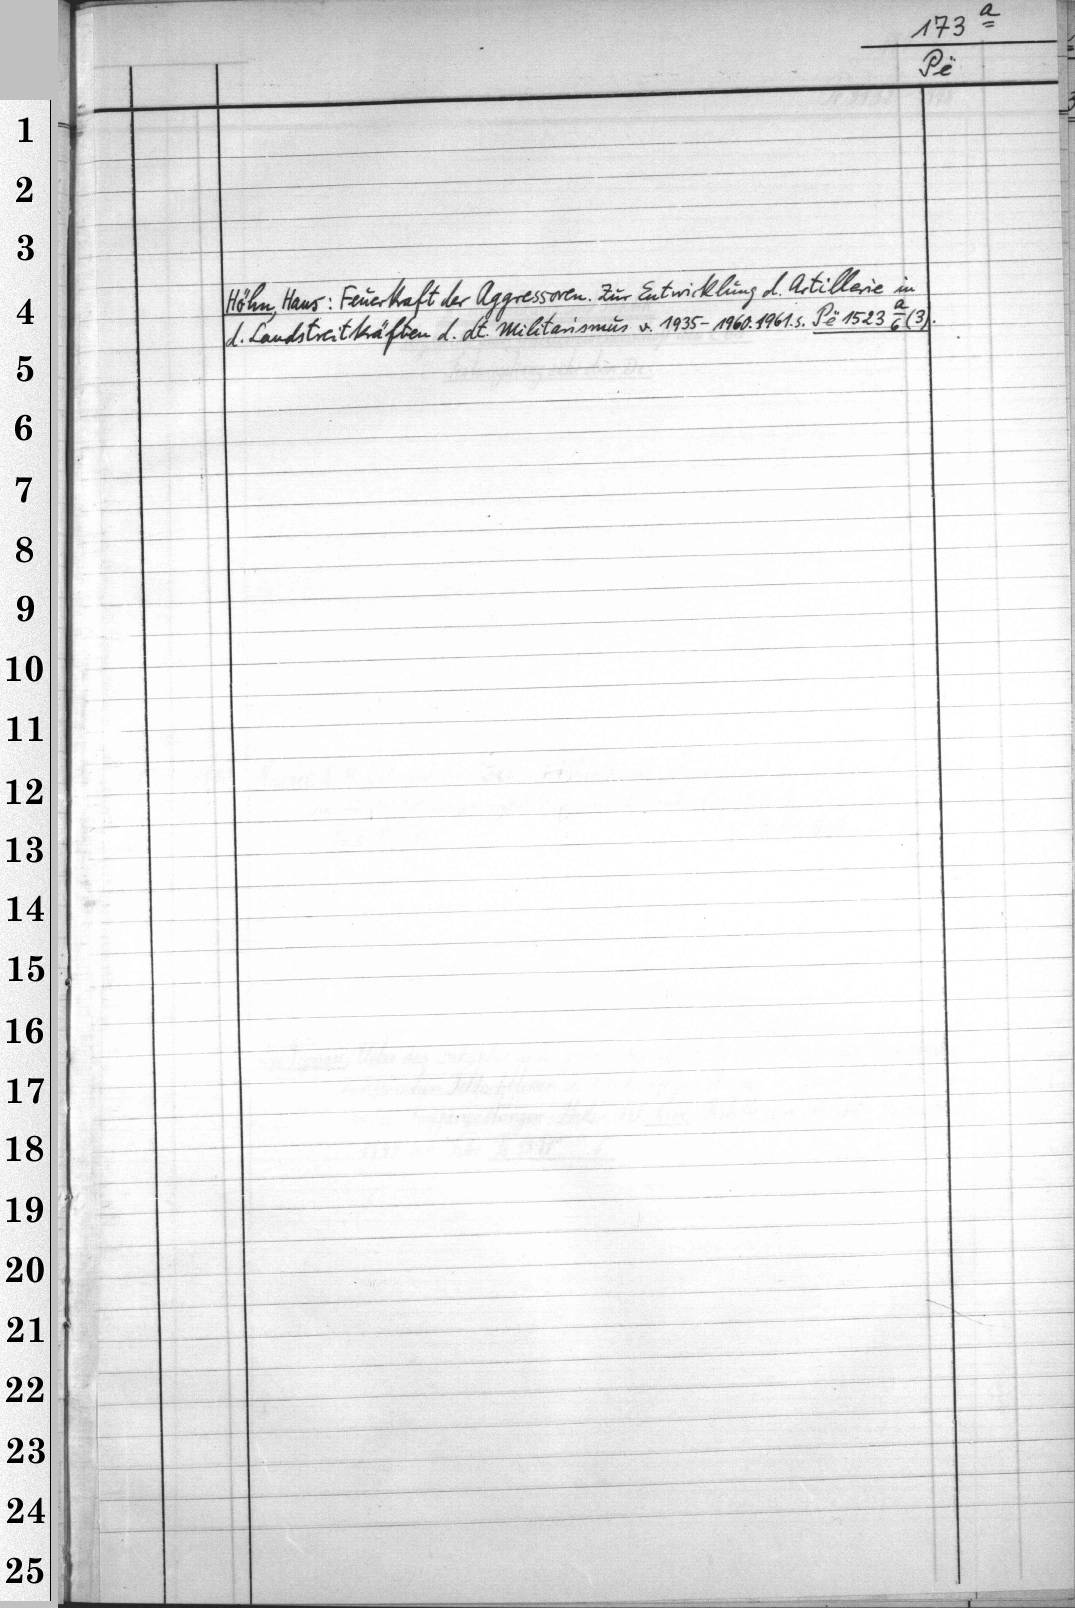 173 a
Pë
1
2
3
Höhn, Hans: Feuerkraft der Aggressoren. Zur Entwicklung d. Artillerie in
4
d. Landstreitkräften d. dt. Militarismus v. 1935-1960. 1961. s. Pë 1523 a/6 (3).
5
6
7
8
9
10
11
12
13
14
15
16
17
18
19
20
21
22
23
24
25